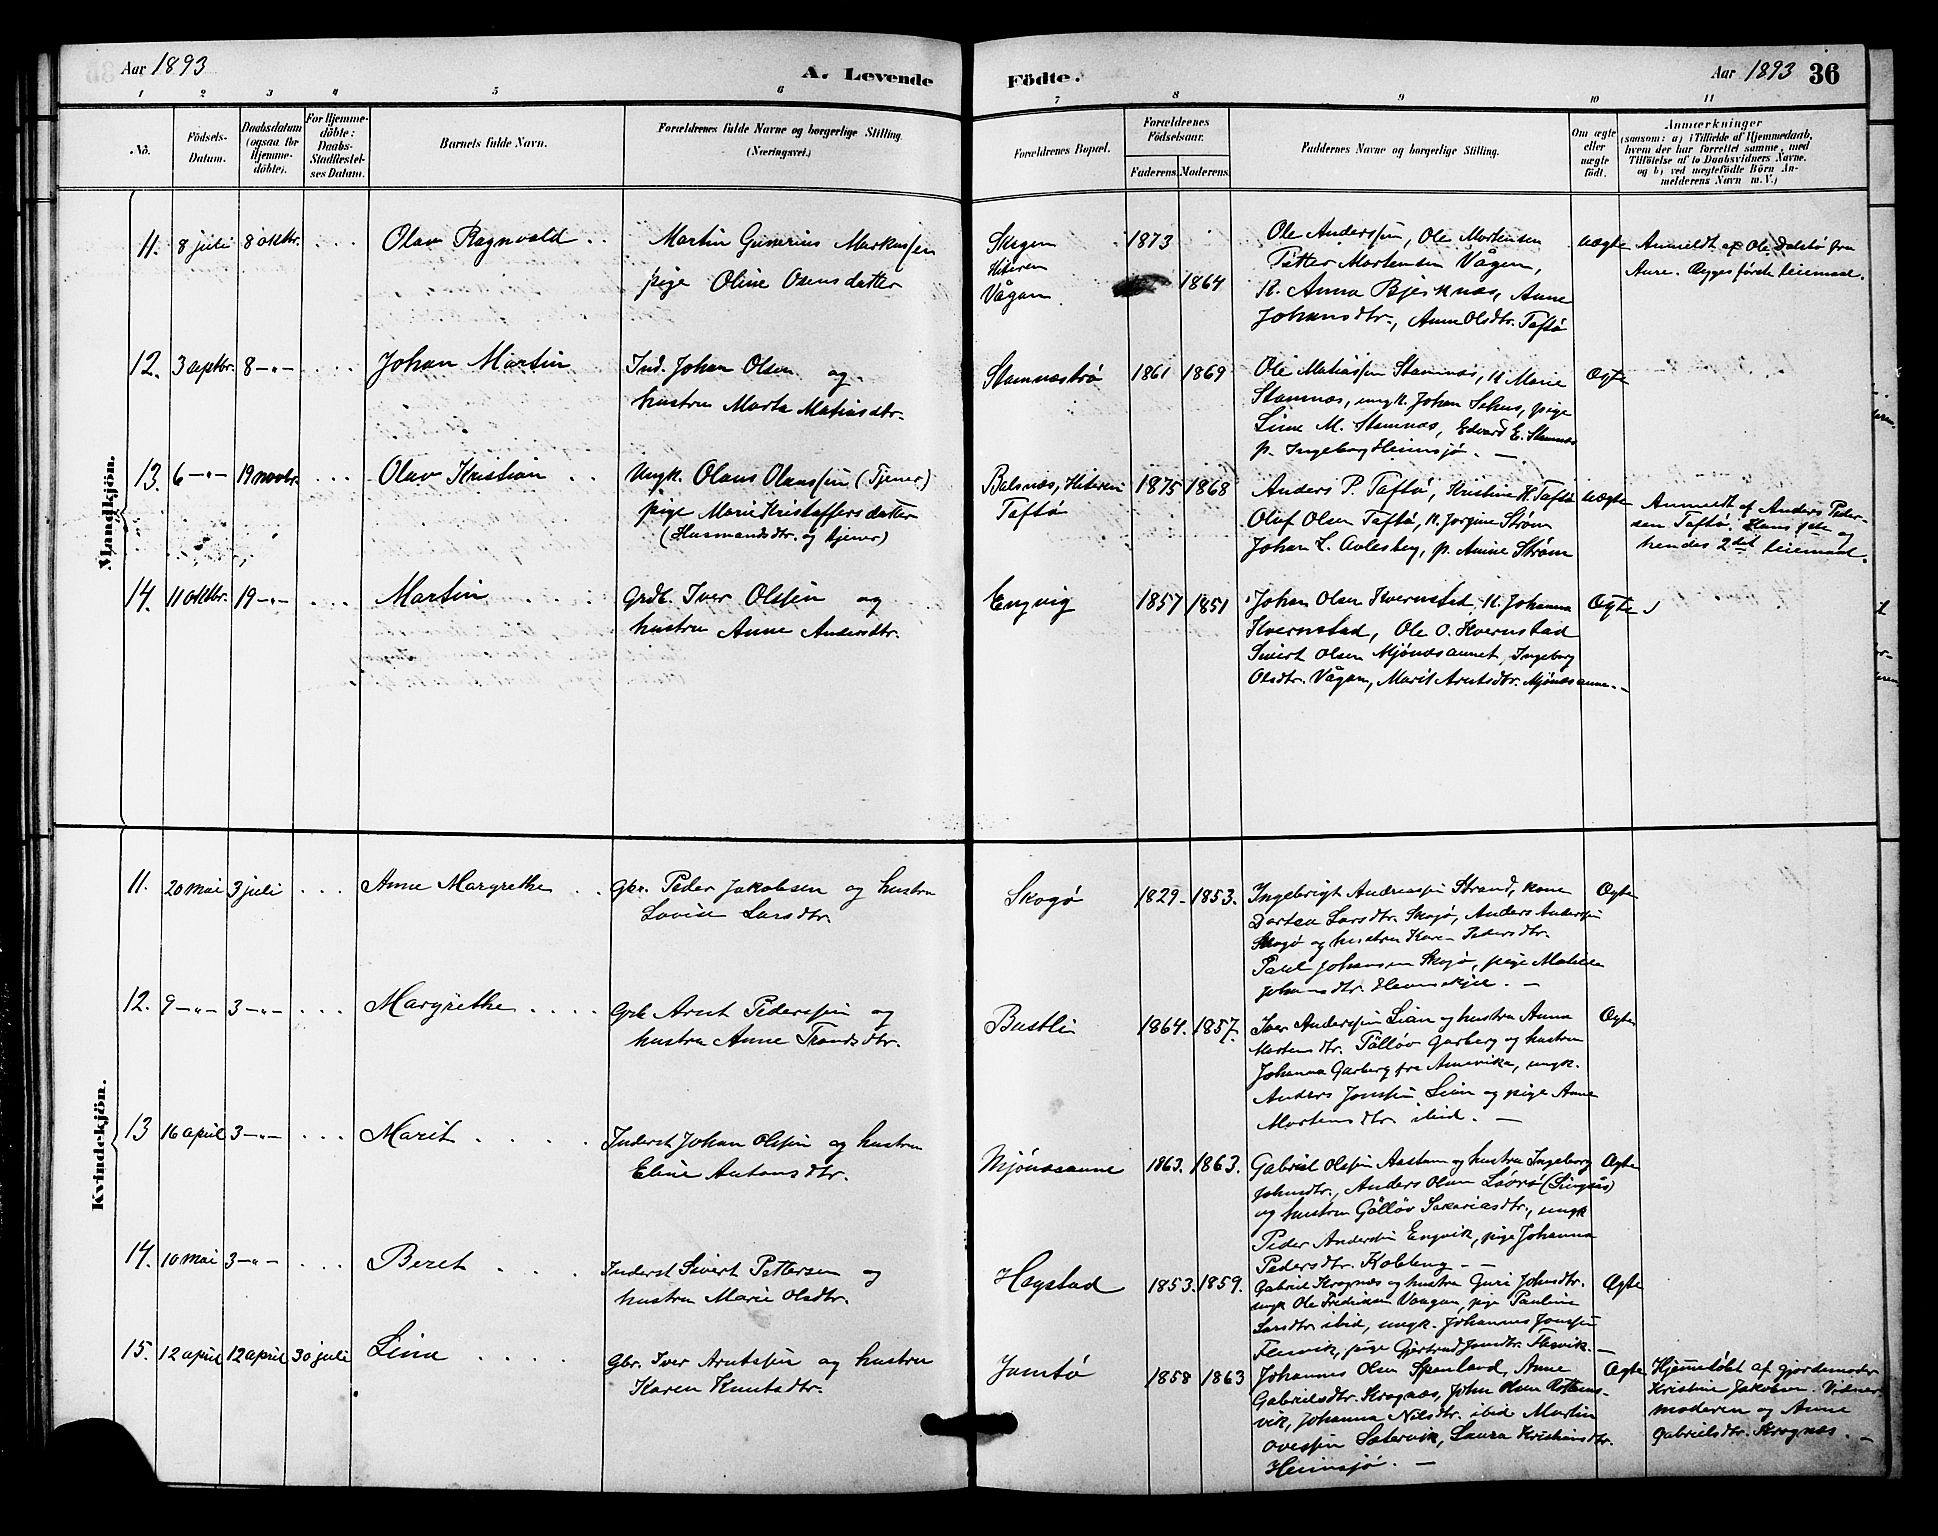 Aar 1893
A. Levende
Födte.
Aar 1893 36
1 2 3 4 5 6 7 8 9 10 11
No.
Födsels-
Datum.
Daabsdatum
(ogsaa for
Hjemme-
döbte).
For Hjemme-
döbte:
Daabs-
Stadfæstel-
ses Datum.
Barnets fulde Navn.
Forældrenes fulde Navne og borgerlige Stilling.
(Næringsvei.)
Forældrenes Bopæl.
Forældrenes
Födselsaar.
Faderens. Moderens.
Faddernes Navne og borgerlige Stilling.
Om ægte
eller
uægte
født.
Anmærkninger
(saasom: a) i Tilfælde af Hjemmedaab,
hvem der har forrettet samme, med
Tilföielse af to Daabsvidners Navne.
og b) ved uægtefödte Börn An-
melderens Navn m. V.)
Mandkjön.
11. 8 juli 8 oktbr. Olav Ragnvald
Martin Gunerius Markussen
pige Oline Osensdatter
Hiteren
Vågan
1873
1864
Ole Anderssen, Ole Mortensen
Petter Mortensen Vågen,
K. Anna Bjerknæs, Anne
Johansdtr., Anne Olsdtr. Taftø
uægte
Anmeldt af Ole Dalstø fra
Aure. Begges første leiemaal.
12. 3 septbr. 8 -"- Johan Martin
Ind. Johan Olsen og
hustru Marta Matiasdtr.
Stamnæstrø
1861 1869
Ole Matiassen Stamnæs, K. Marie
Stamnæs, ungk. Johan Sehus, pige
Line M. Stamnæs, Edvard E. Stamnæs
p. Ingeborg Heimsjø. —
Ægte
13. 6 -"- 19 novbr. Olav Kristian
Ungk. Olaus Olaussen (Tjener)
pige Marie Kristaffersdatter
(Husmandsdtr. og tjener)
Balsnæs, Hiteren
Taftø
1875 1868
Anders P. Taftø, Kristine K. Taftø
Oluf Olsen Taftø, K. Jorgine Strøm
Johan L. Avlesbug, p. Anne Strøm
uægte
Anmeldt af Anders Peder-
sen Taftø. Hans 1ste og
hendes 2det leiemaal.
14. 11 oktbr. 19 -"- Martin
Grdb. Iver Olssen og
hustru Anne Andersdtr.
Engvig
1857 1851
Johan Olsen Kvernstad, K. Johanna
Kvernstad, Ole O. Kvernstad
Sivert Olsen Mjønæsaunet, Ingeborg
Olsdtr. Vågan, Marit Arntsdtr. Mjønæsaune. -
Ægte
Kvindekjön.
11. 20 mai 3 juli Anne Margrethe
Gbr. Peder Jakobsen og hustru
Lovise Larsdtr.
Skogø
1829 - 1853.
Ingebrigt Andreassen Strand, kone
Dortea Larsdtr. Skogø, Anders Anderssen
Skogø og hustru Karen Pedersdtr.
Paul Johansen Skogø, pige Matilda
Johansdtr. Hevnskjel. —
Ægte
12. 9 -"- 3 -"- Margrethe
Grb. Arnt Pederssen og
hustru Anne Trondsdtr.
Bustli
1864. 1857.
Iver Anderssen Lian og hustru Anna
Mortensdtr. Tølløv Garberg og hustru
Johanna Garberg fra Amerika, ungk.
Anders Jonssen Lian og pige Anne
Mortensdtr. ibid. —
Ægte
13 16 april 3 -"- Marit
Inderst Johan Olssen og hustru
Eline Antonsdtr.
Mjønæsaune
1863. 1863.
Gabriel Olssen Aastum og hustru Ingeborg
Johnsdtr., Anders Olsen (Singsås)
og hustru Gølløv Sakariasdtr., ungk
Peder Anderssen Engvik, pige Johanna
Pedersdtr. —
Ægte
14. 10 mai 3 -"- Beret
Inderst Sivert Pettersen og
hustru Marie Olsdtr.
Hegstad
1853. 1859.
Gabriel Krognæs og hustru Guri Johnsdtr.
ungk Ole Fredriksen Vaagan, pige Pauline
Larsdtr. ibid, ungk. Johannes Jonssen
Flesvik, pige Gjertrud Jonsdtr. Flesvik. —
Ægte
15. 12 april 12 april 30 juli Line
Gbr. Iver Arntssen og hustru
Karen Knutsdtr.
Jamtø
1858 1863
Johannes Olsen Spenland, Anne
Gabrielsdtr. Krognæs, John Olsen Rottems-
vik, Johanna Nilsdtr. ibid Martin
Ovessen Sætervik, Laura Kristiansdtr.
Heimsjø. —
Ægte
Hjemedøbt af gjordemoder
Kristine Jakobsen. Vidner:
moderen og Anne
Gabrielsdtr. Krognæs. —